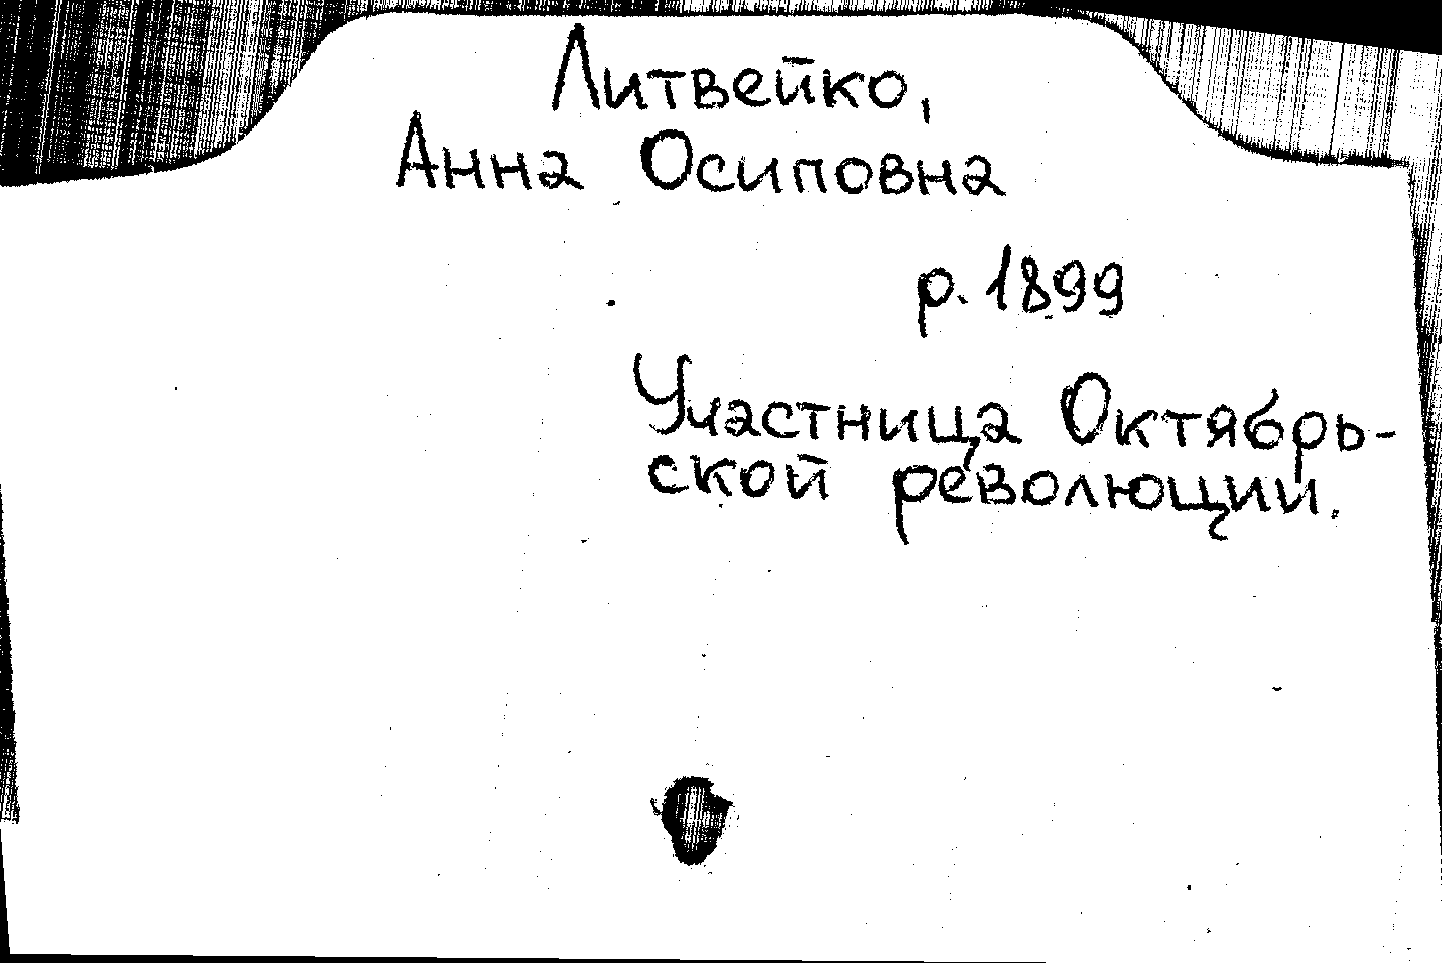 Литвейко,
Анна Осиповна
р. 1899
Участница Октябрь-
ской революции.